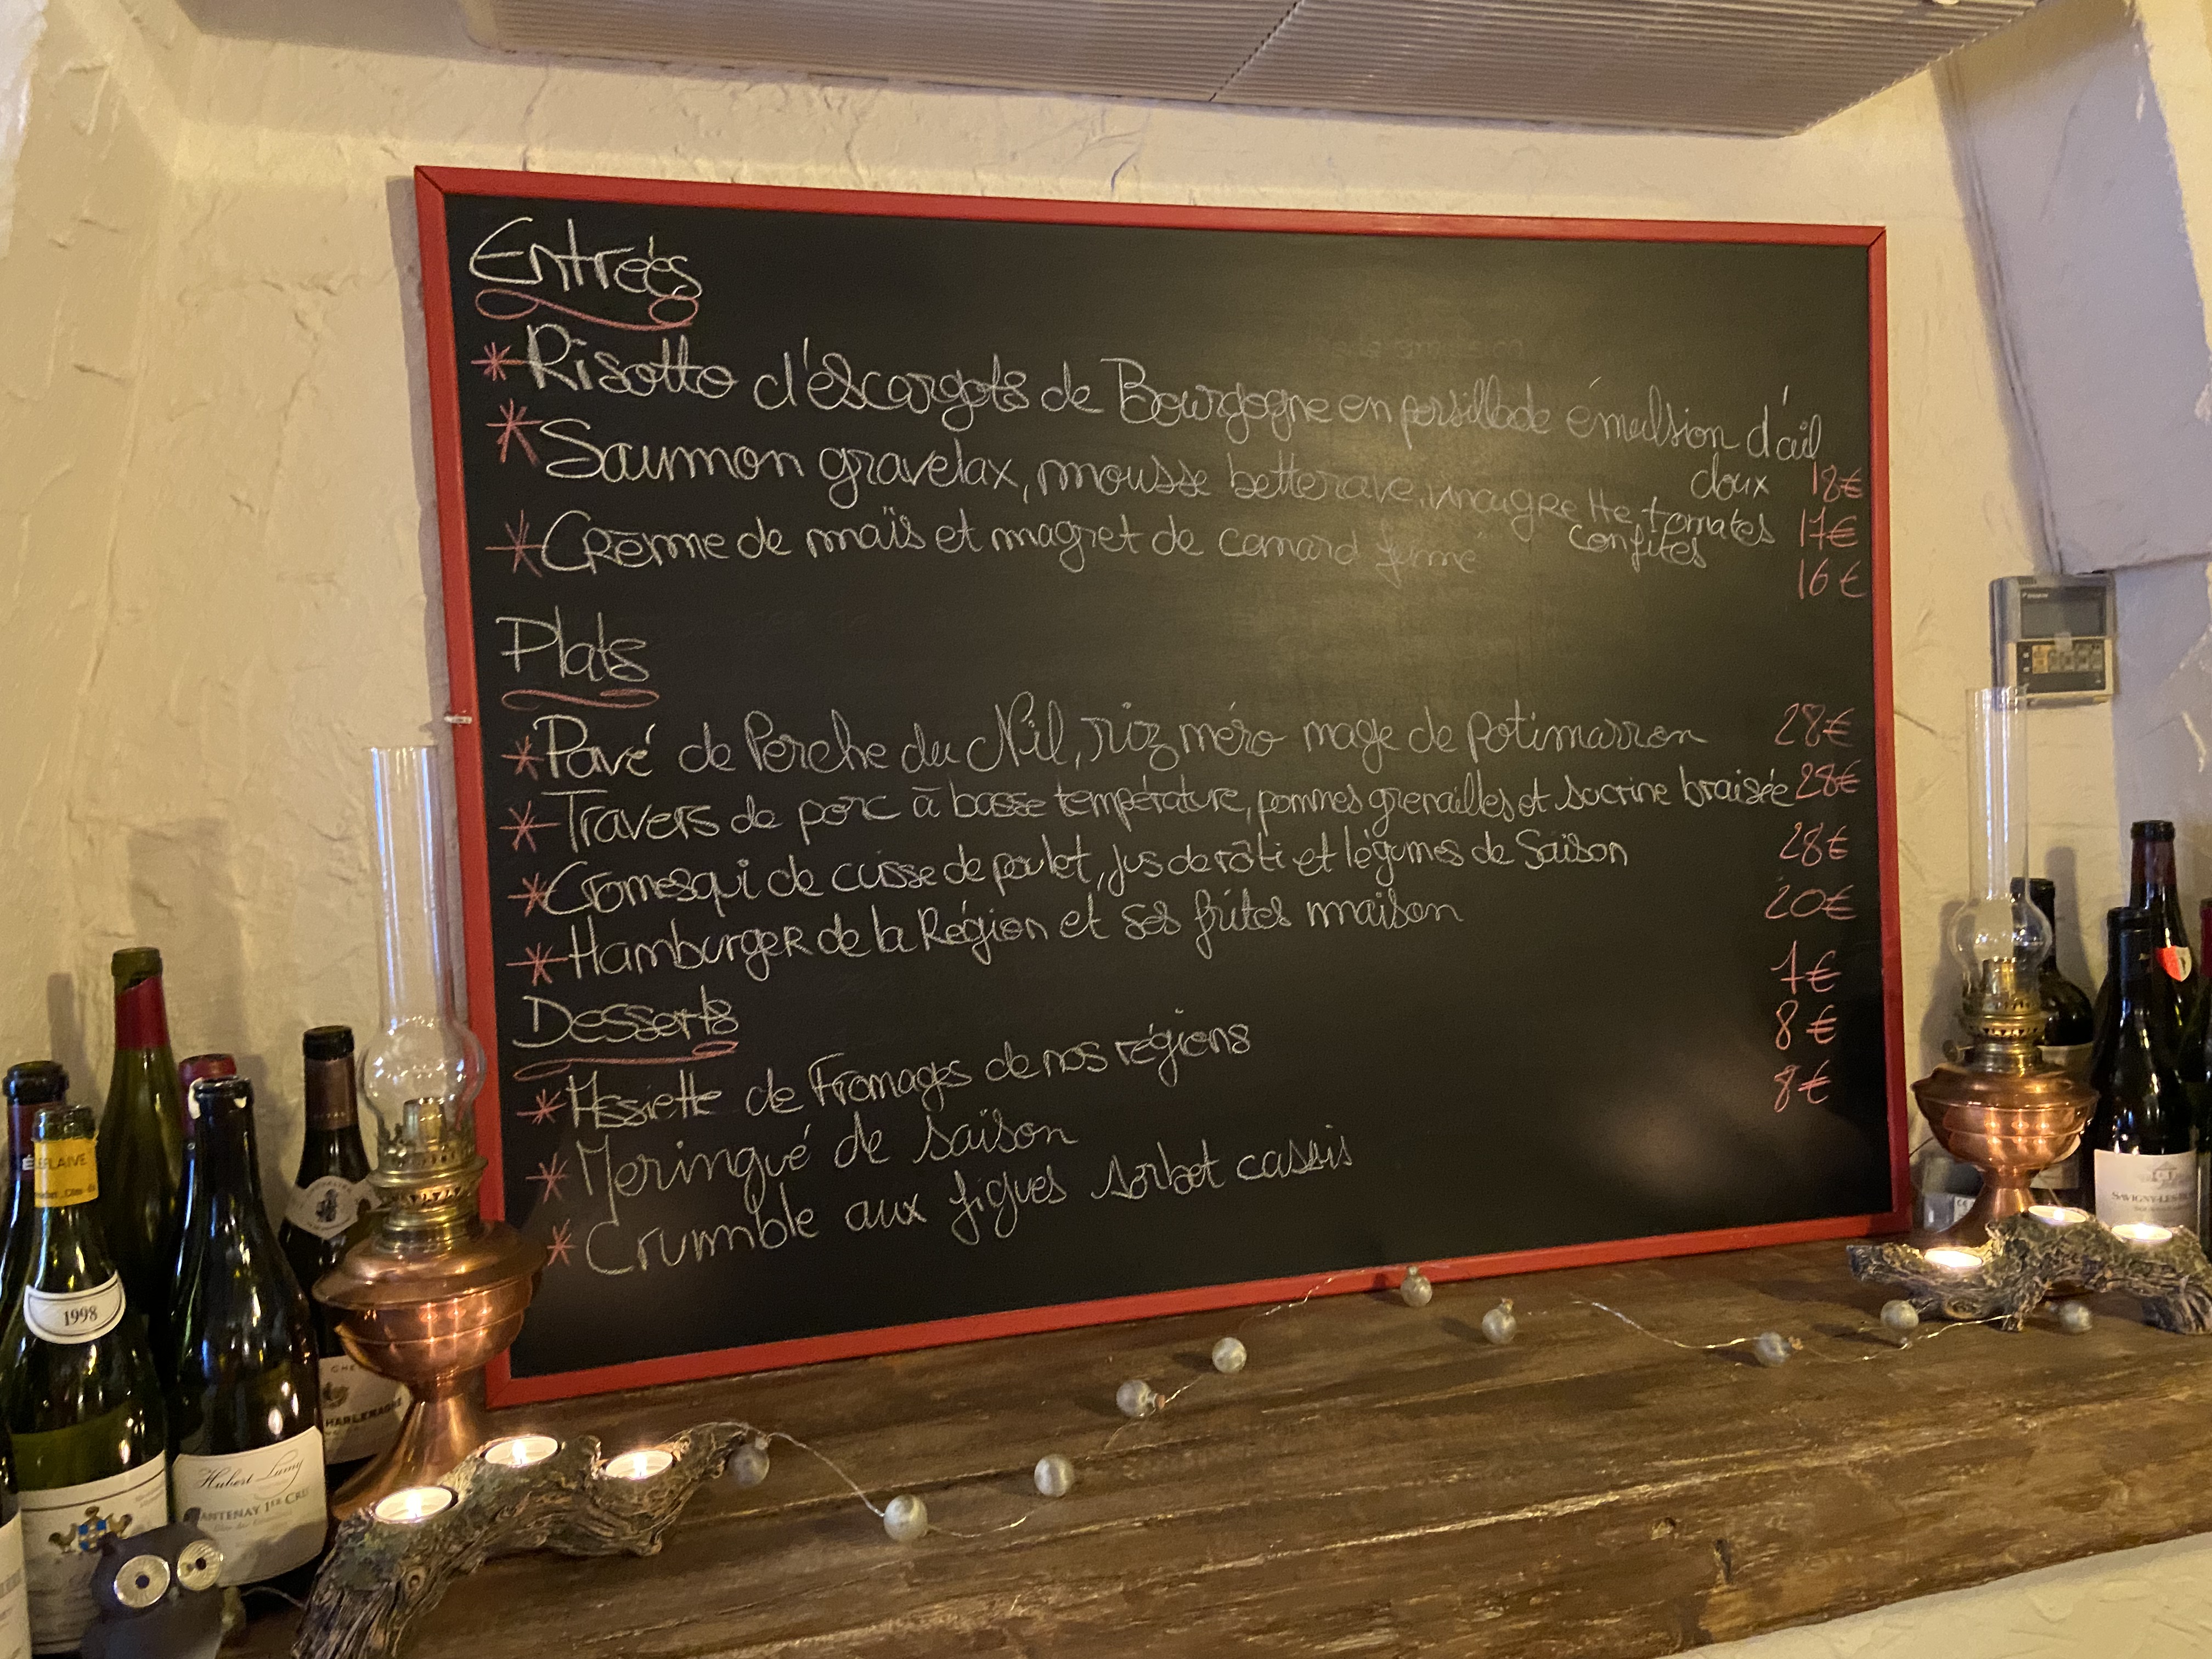 Entrées
* Risotto d'éscargots de Bourgogne en persillade émulsion d'ail
doux 18€
* Saumon gravelax, mousse betterave, vinaigrette, tomates 17€
confites
* Crème de maïs et magret de canard fumé 16€
Plats
* Pavé de Perche du Nil, riz méro mage de potimarron 28€
* Travers de porc à basse température, pommes grenailles et sucrine braisée 28€
* Cromesqui de cuisse de poulet, jus de rôti et légumes de Saïson 28€
* Hamburger de la Région et ses frîtes maison 20€
Desserts
* Assiette de Fromages de nos régions 7€
* Meringué de saïson 8€
* Crumble aux figues sorbet cassis 8€
LEFLAIVE
1998
Hubert Lamy
SANTENAY 1ER CRU
CHARLEMAGNE
SAVIGNY-LES-